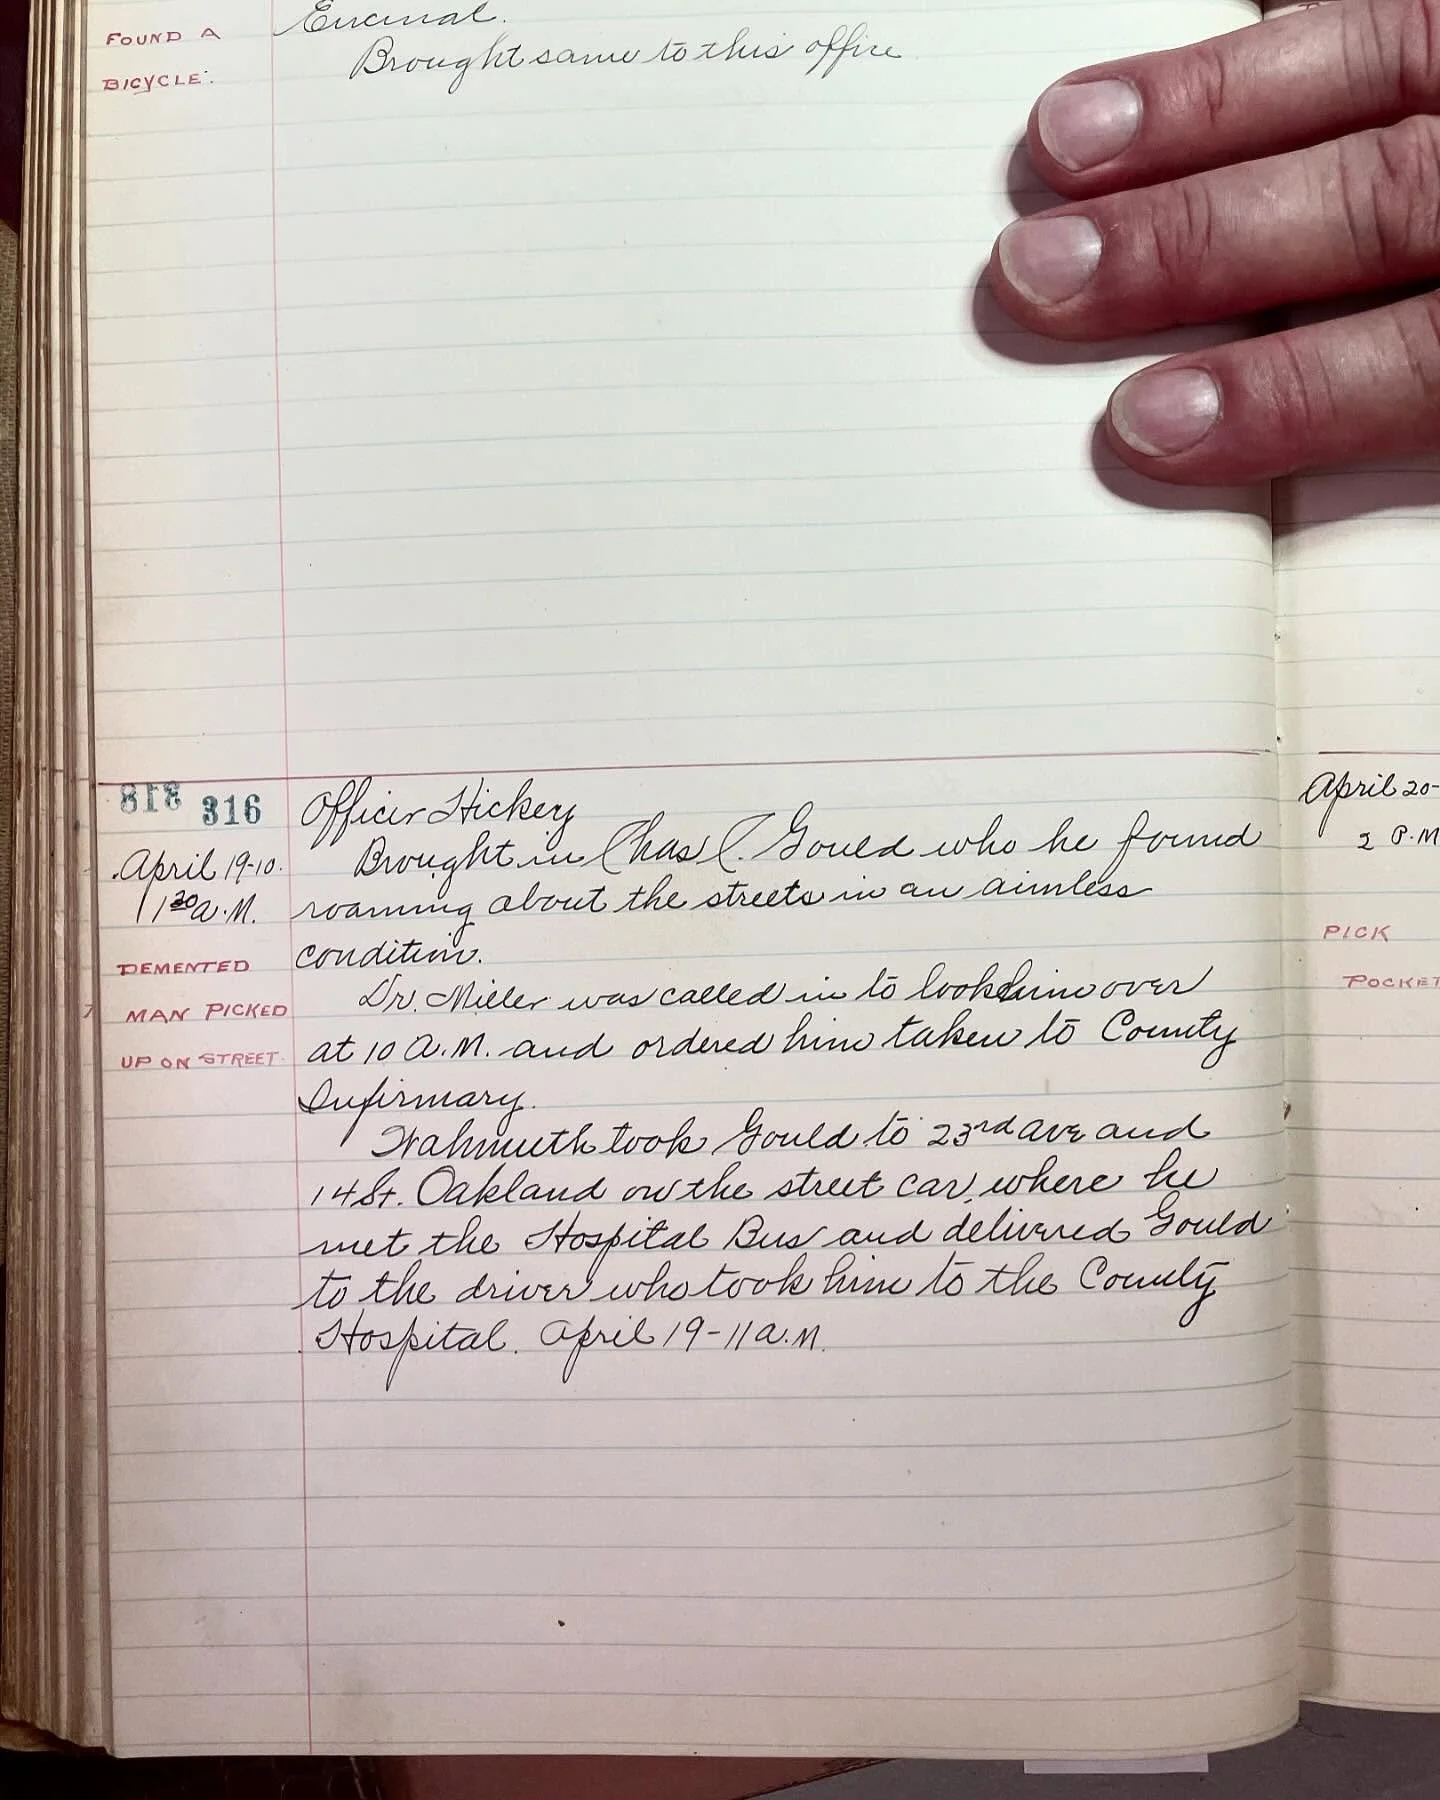 FOUND A
BICYCLE.
Encinal.
Brought same to this office
318 316
April 19-10.
1 30 A.M.
DEMENTED
MAN PICKED
UP ON STREET.
Officer Hickey
Brought in Chas C. Gould who he found
roaming about the streets in an aimless
condition.
Dr. Miller was called in to look him over
at 10 A.M. and ordered him taken to County
Infirmary.
Wahmuth took Gould to 23rd ave and
14 St. Oakland on the street car, where he
met the Hospital Bus and delivered Gould
to the driver who took him to the County
Hospital. April 19-11 a.m.
April 20-
2 P.M
PICK
POCKET